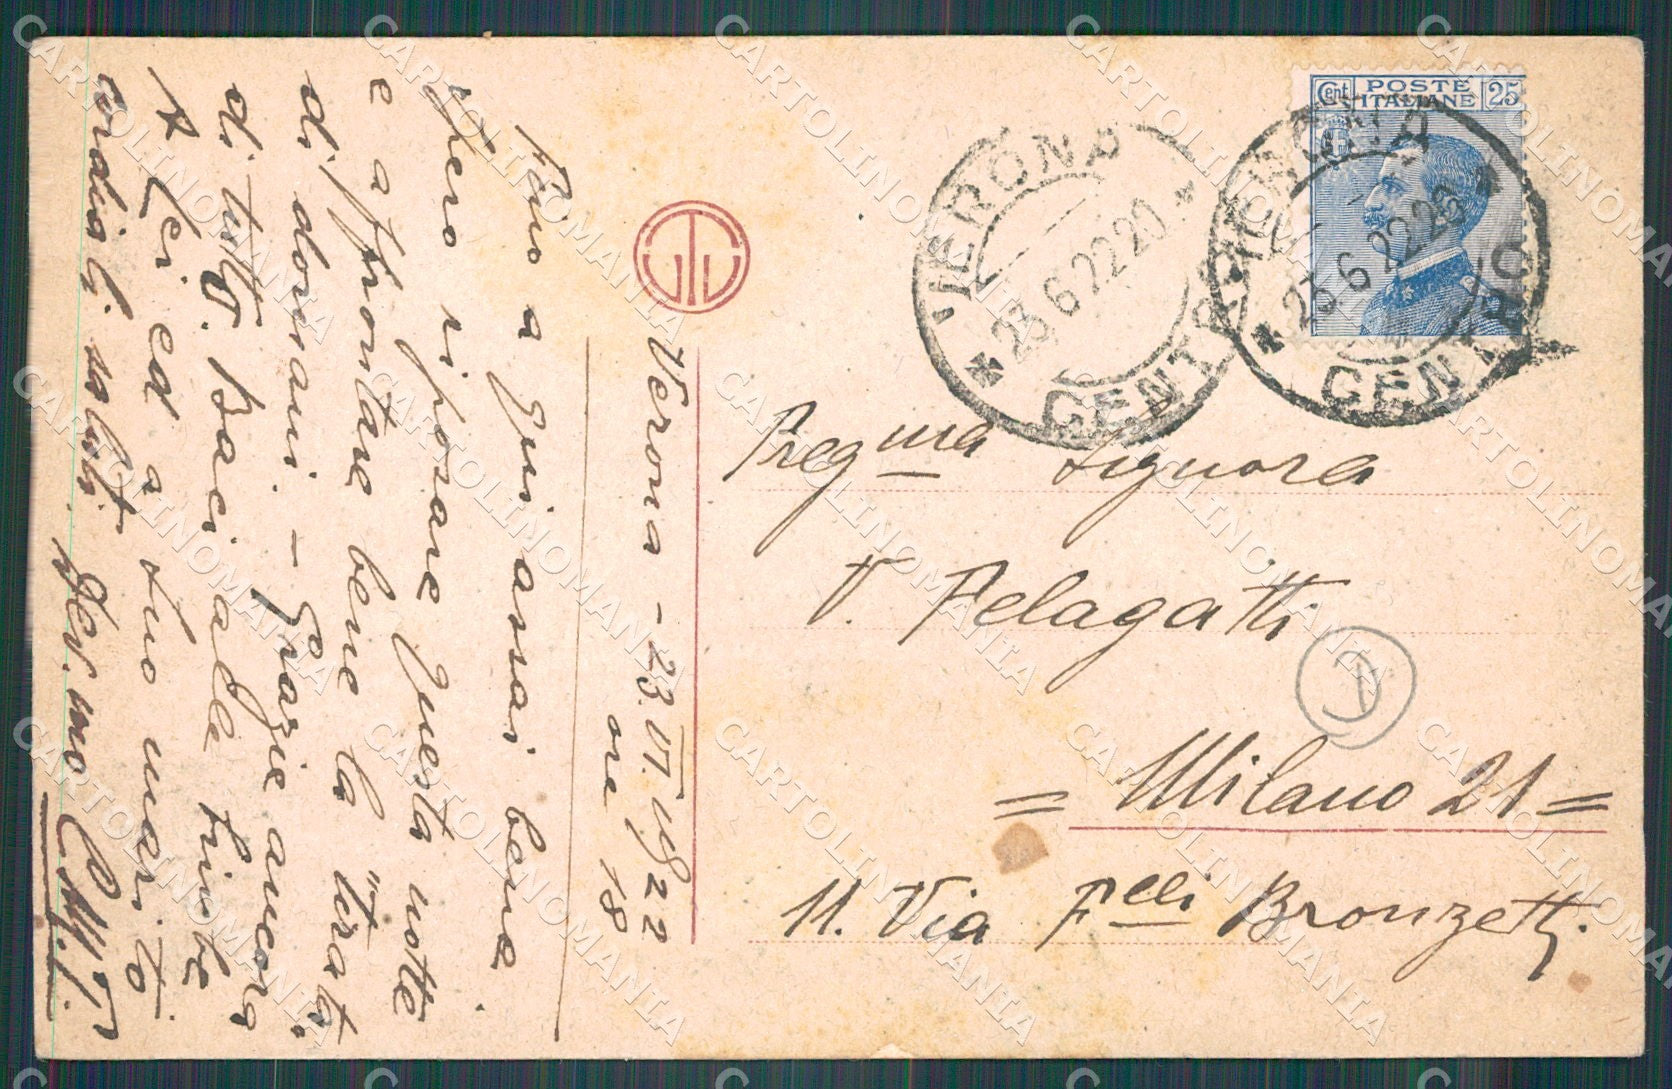 Verona - 23.VI.1922
ore 18
Fino a qui assai bene.
Spero riposare questa notte
e affrontare bene la "tirata"
di domani. - Grazie ancora
di tutto. Baci alle bimbe
A Lei ed a suo marito
cordiali saluti.
POSTE
ITALIANE
Cent 25
VERONA
23 6 22 20
CENTRO
VERONA
23 6 22 20
CENTRO
Preg.ma Signora
V. Pelagatti
= Milano 21 =
11. Via F.lli Bronzetti.
CARTOLINOMANIA